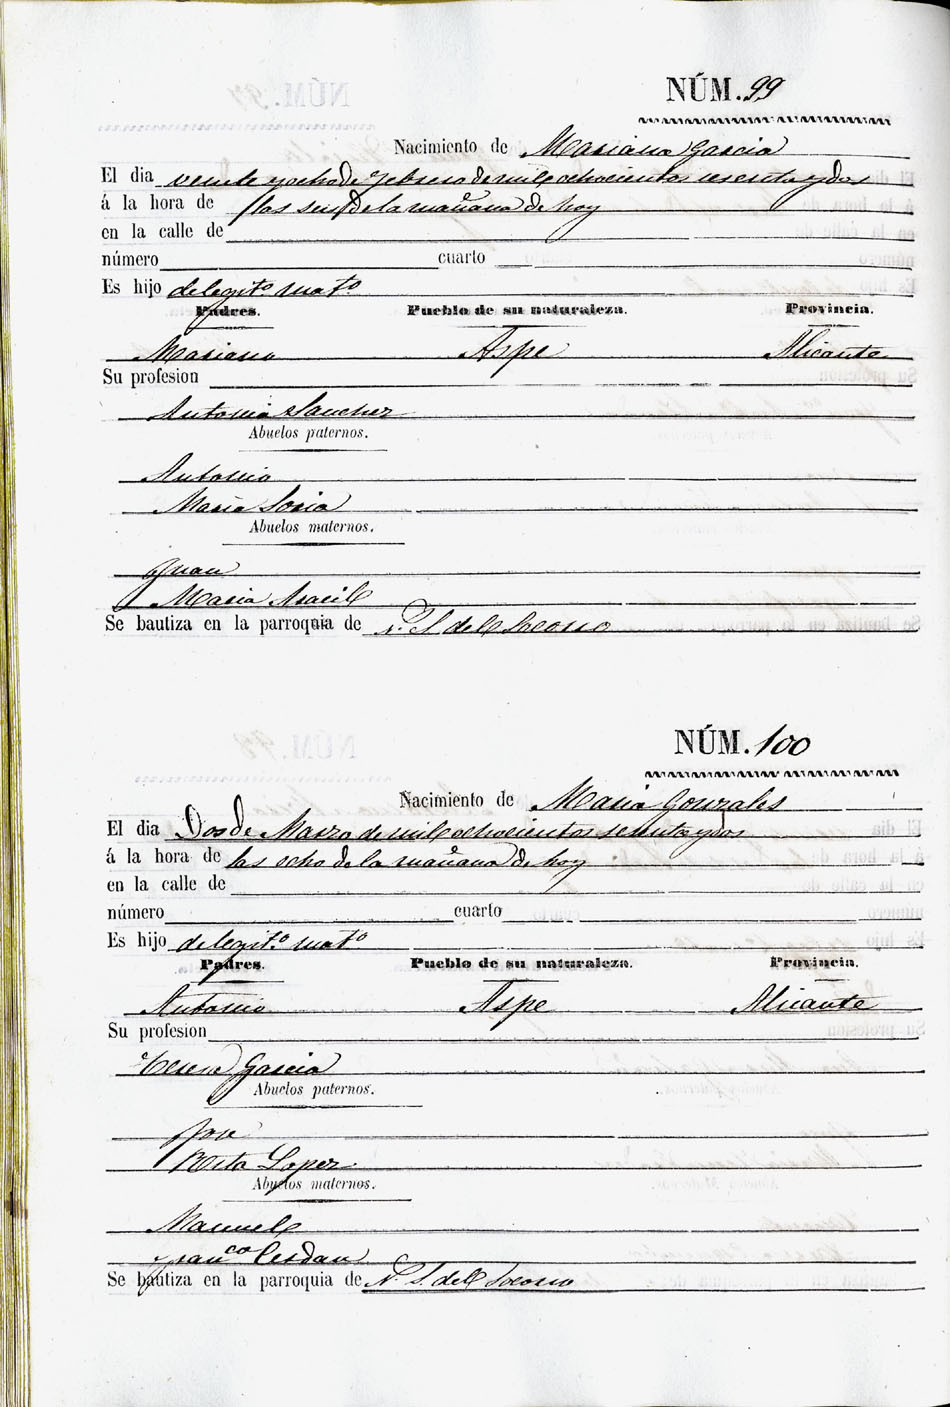 NÚM. 99
Nacimiento de Mariano Garcia
El dia veinte y ocho de Febrero de mil ochocientos sesenta y dos
á la hora de las seis de la mañana de hoy
en la calle de
número cuarto
Es hijo de legitº. matº.
Padres. Pueblo de su naturaleza. Provincia.
Mariano Aspe Alicante
Su profesion
Antonia Sanchez
Abuelos paternos.
Antonio
Maria Soria
Abuelos maternos.
Juan
Maria Asacil
Se bautiza en la parroquia de N. S. del Socorro
NÚM. 100
Nacimiento de Maria Gonzales
El dia Dos de Marzo de mil ochocientos sesenta y dos
á la hora de las ocho de la mañana de hoy
en la calle de
número cuarto
Es hijo de legit.º matº
Padres. Pueblo de su naturaleza. Provincia.
Antonio Aspe Alicante
Su profesion
Teresa Garcia
Abuelos paternos.
Jose
Rita Lopez
Abuelos maternos.
Manuel
Franco Cerdan
Se bautiza en la parroquia de N. S. del Socorro